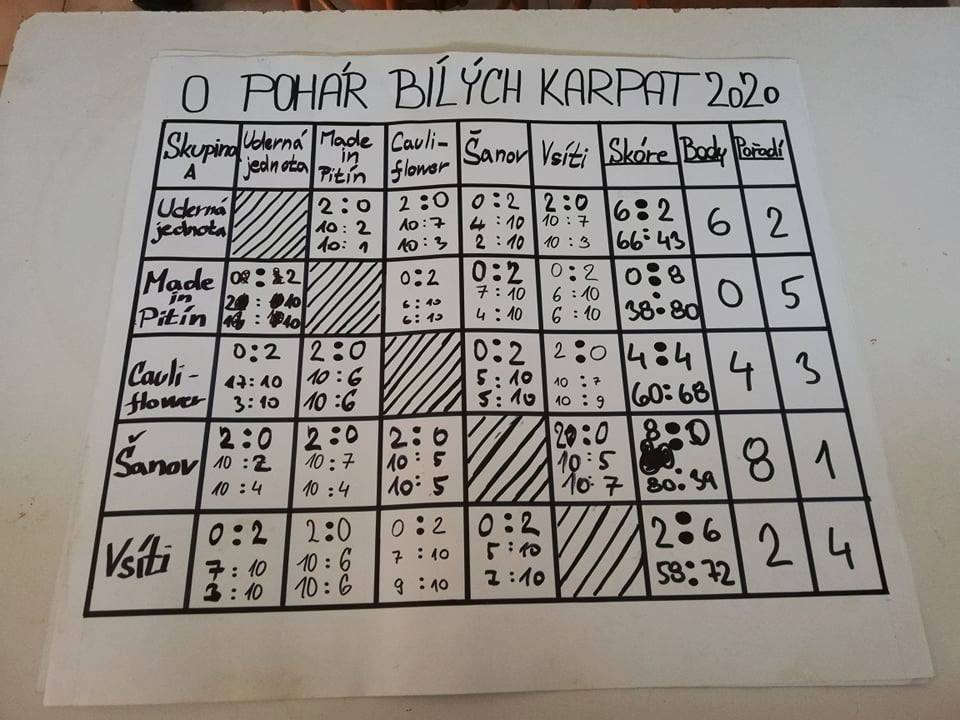 O POHÁR BÍLÝCH KARPAT 2020
Skupina A Uderná jednota Made in Pitín Cauli-flower Šanov Vsíti Skóre Body Pořadí
Uderná jednota 2:0 2:0 0:2 2:0 6:2 6 2
10:2 10:7 4:10 10:7 66:43
10:1 10:3 2:10 10:3
Made in Pitín 0:2 0:2 0:2 0:2 0:8 0 5
6:10 7:10 6:10 38:80
6:10 4:10 6:10
Cauli-flower 0:2 2:0 0:2 2:0 4:4 4 3
7:10 10:6 5:10 10:7 60:68
3:10 10:6 5:10 10:9
Šanov 2:0 2:0 2:0 2:0 8:0 8 1
10:2 10:7 10:5 10:5
10:4 10:4 10:5 10:7 80:39
Vsíti 0:2 2:0 0:2 0:2 2:6 2 4
7:10 10:6 7:10 5:10 58:72
3:10 10:6 9:10 7:10